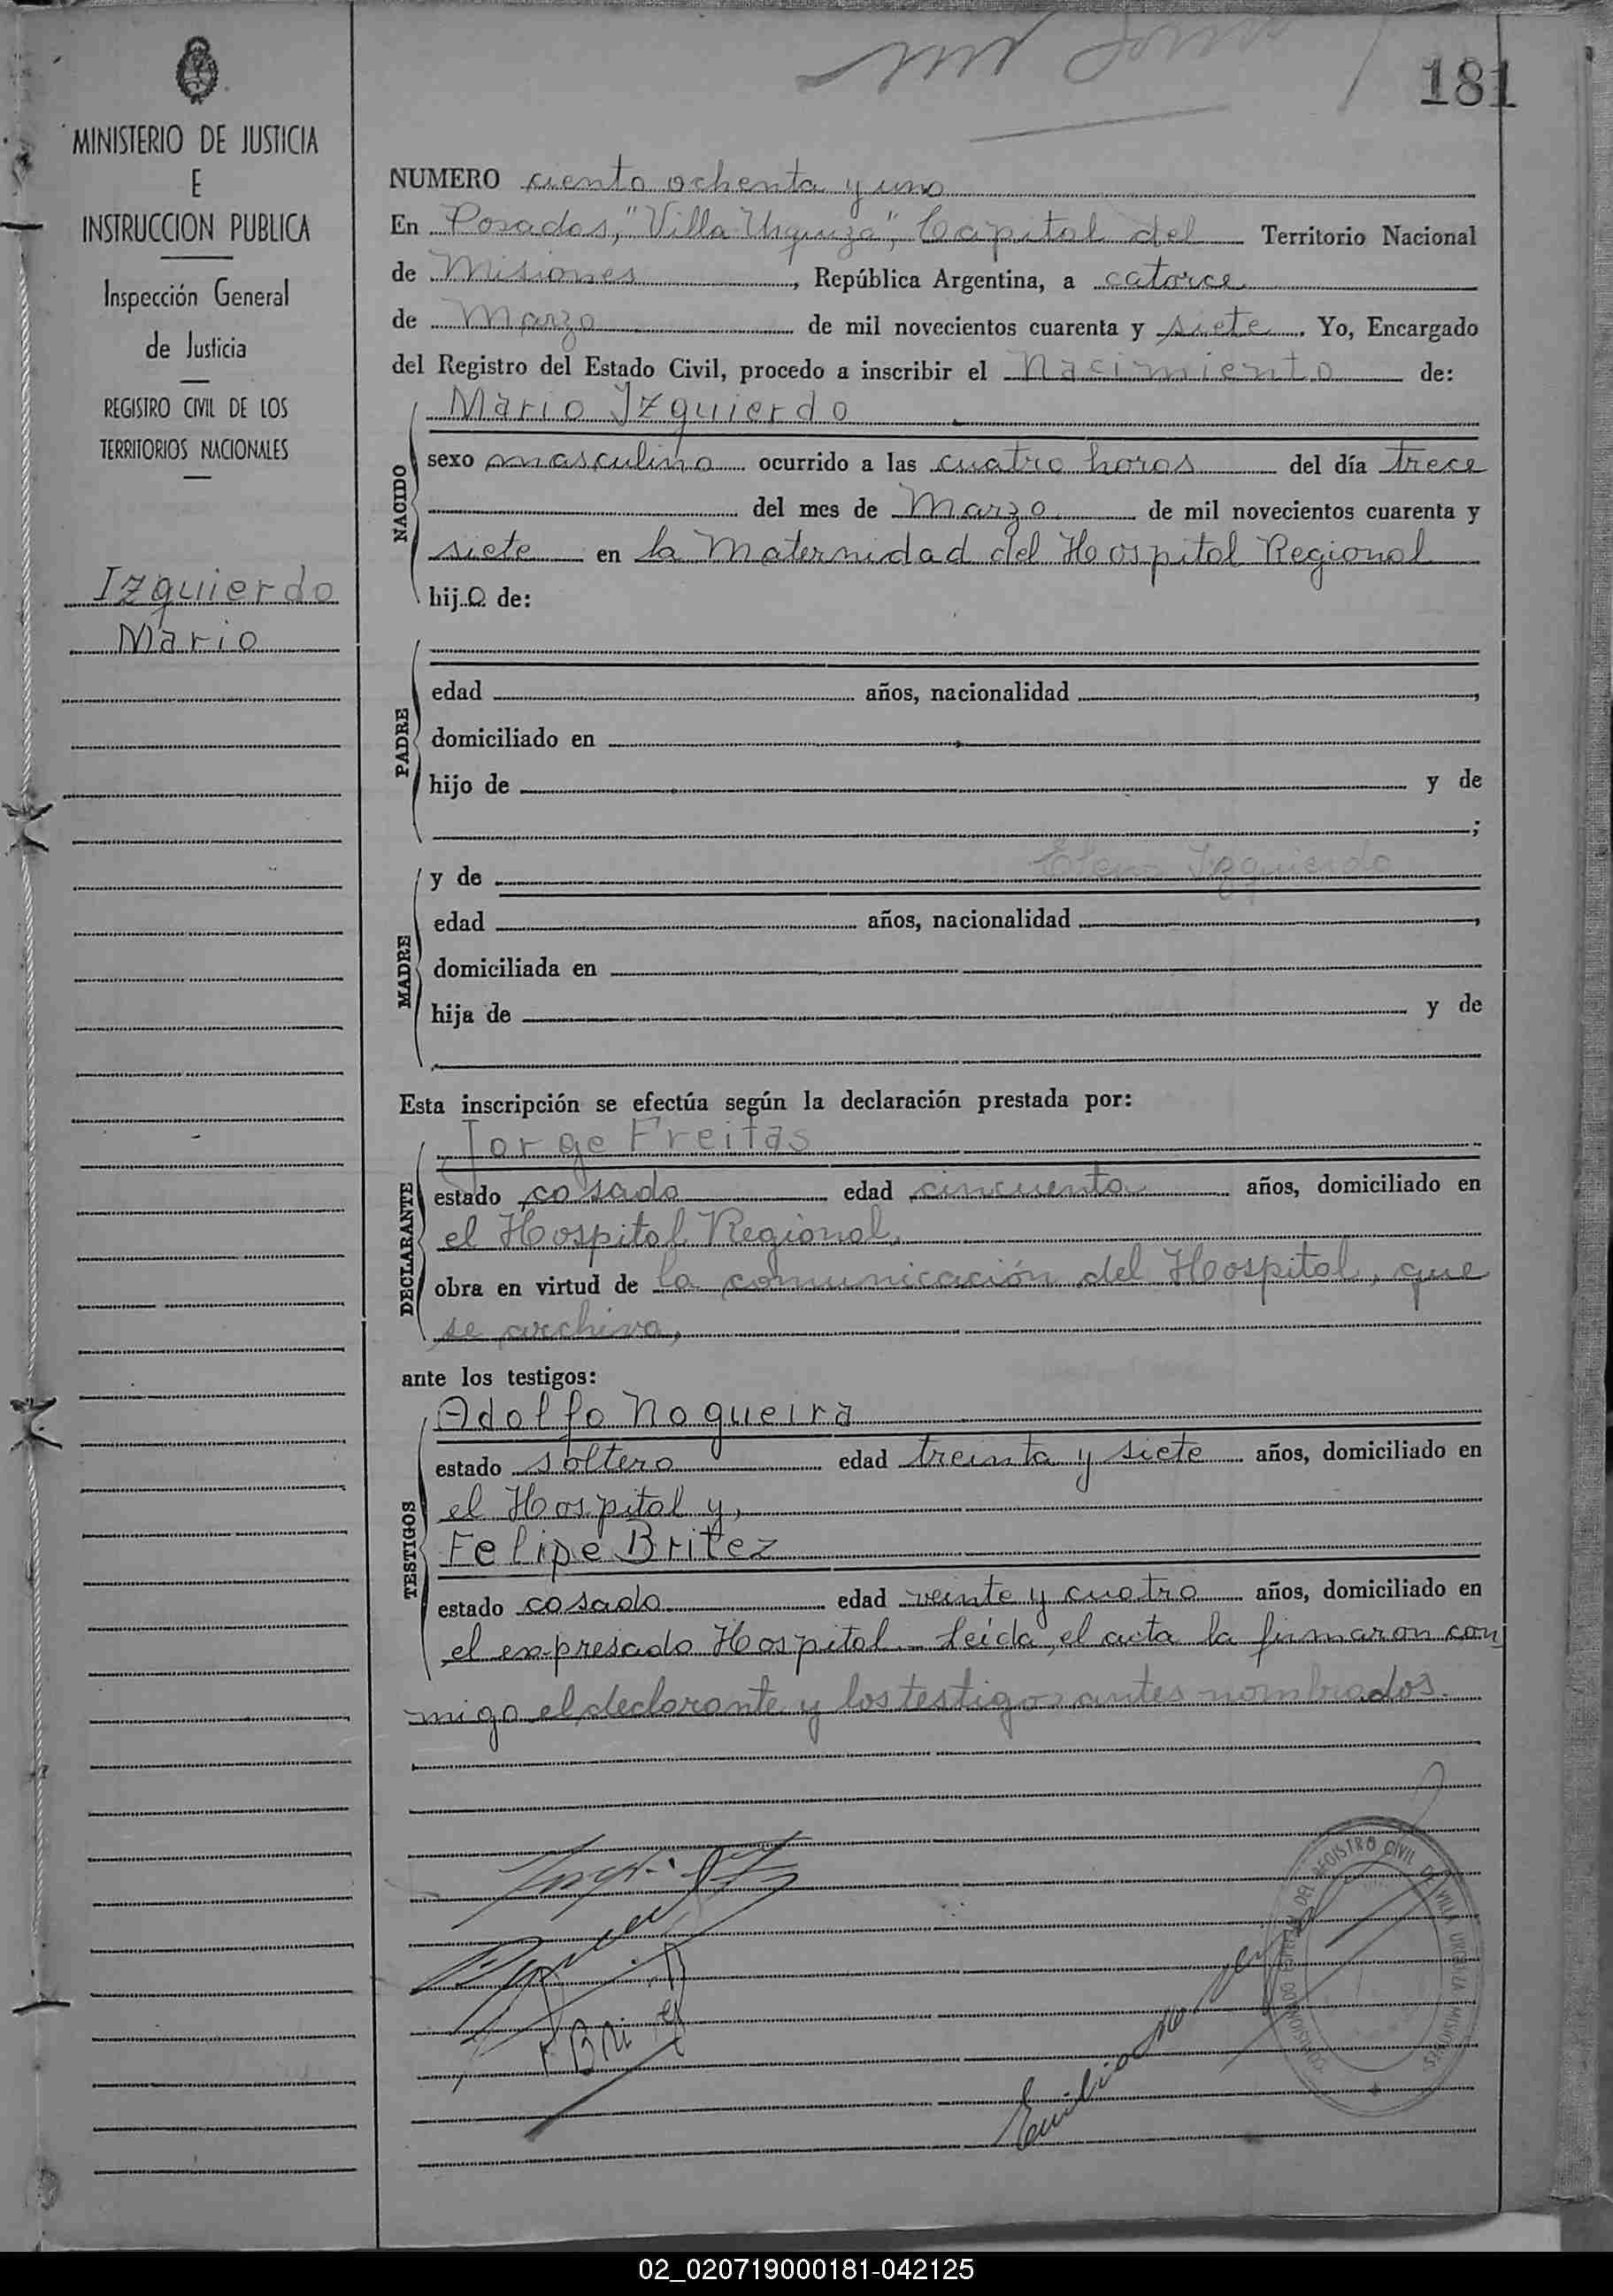 181
MINISTERIO DE JUSTICIA
E
INSTRUCCION PUBLICA
Inspección General
de Justicia
REGISTRO CIVIL DE LOS
TERRITORIOS NACIONALES
Izquierdo
Mario
NUMERO ciento ochenta y uno
En Posadas, "Villa Urquiza", Capital del Territorio Nacional
de Misiones, República Argentina, a catorce
de Marzo de mil novecientos cuarenta y siete. Yo, Encargado
del Registro del Estado Civil, procedo a inscribir el Nacimiento de:
NACIDO
Mario Izquierdo
sexo masculino ocurrido a las cuatro horas del día trece
del mes de Marzo de mil novecientos cuarenta y
siete en la Maternidad del Hospital Regional
hijo de:
PADRE
edad años, nacionalidad ,
domiciliado en
hijo de y de
;
MADRE
y de Elena Izquierdo
edad años, nacionalidad ,
domiciliada en
hija de y de
Esta inscripción se efectúa según la declaración prestada por:
DECLARANTE
Jorge Freitas
estado casado edad cincuenta años, domiciliado en
el Hospital Regional,
obra en virtud de la comunicación del Hospital, que
se archiva,
ante los testigos:
TESTIGOS
Adolfo Nogueira
estado soltero edad treinta y siete años, domiciliado en
el Hospital y,
Felipe Britez
estado casado edad veinte y cuatro años, domiciliado en
el expresado Hospital. Leída, el acta la firmaron con
migo el declarante y los testigos antes nombrados.
F Britez
Emilio
REGISTRO CIVIL DE VILLA URQUIZA MISIONES
02_020719000181-042125